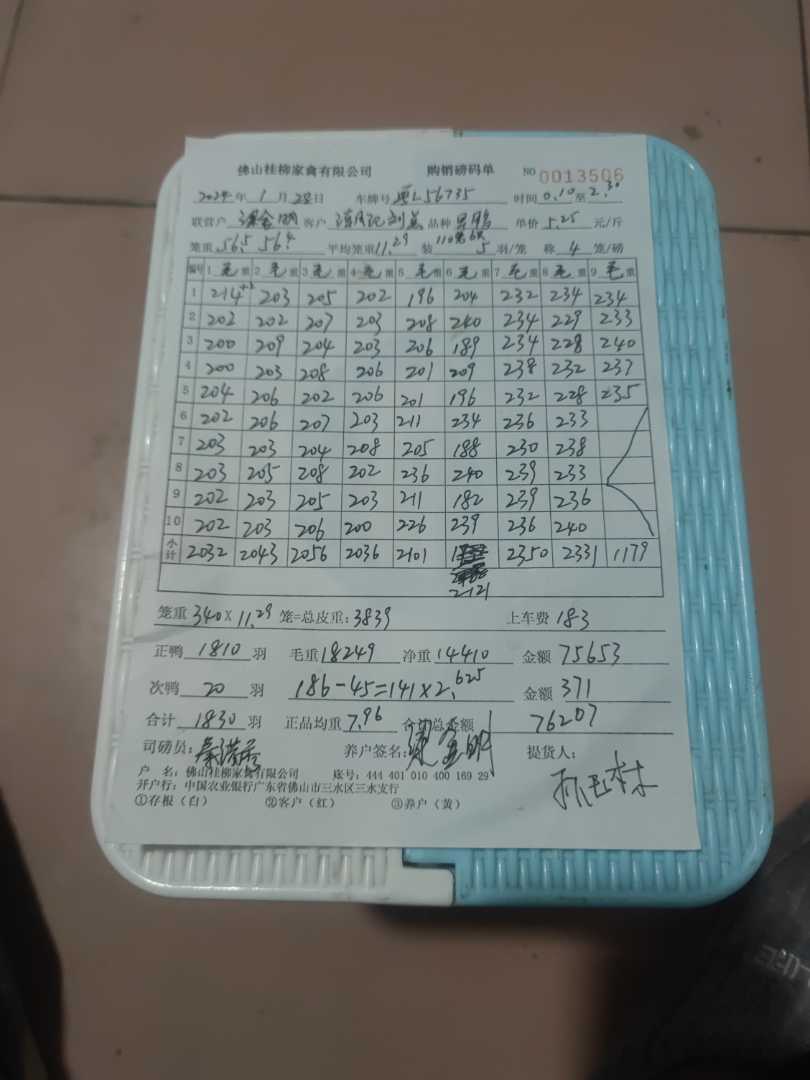 佛山桂柳家禽有限公司 购销磅码单 NO 0013506
2024年1月28日 车牌号 L56735 时间 0.10至2.30
联营户 客户 品种 单价 5.25 元/斤
笼重 56.5 56.4 平均笼重 11.29 装 5 羽/笼 称 4 笼/磅
编号 1 毛重 2 毛重 3 毛重 4 毛重 5 毛重 6 毛重 7 毛重 8 毛重 9 毛重
1 214 203 205 202 196 204 232 234 234
2 202 202 207 203 208 240 234 229 233
3 200 209 204 203 206 189 234 228 240
4 200 203 208 206 201 209 238 232 237
5 204 206 202 206 201 196 232 228 235
6 202 206 207 203 211 234 236 233
7 203 203 204 208 205 188 230 238
8 203 205 208 202 236 240 239 233
9 202 203 205 203 211 182 239 236
10 202 203 206 200 226 239 236 240
小计 2032 2043 2056 2036 2101 2350 2331 1179
2121
笼重 340 X 11.29 笼=总皮重: 3839 上车费 183
正鸭 1810 羽 毛重 18249 净重 14410 金额 75653
次鸭 20 羽 186-45=141×2.625 金额 371
合计 1830 羽 正品均重 7.96 总金额 76207
司磅员: 养户签名: 梁金明 提货人:
户 名: 佛山桂柳家禽有限公司 账号: 444 401 010 400 169 29
开户行: 中国农业银行广东省佛山市三水区三水支行
①存根(白) ②客户(红) ③养户(黄)